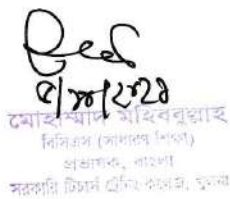 মোহাম্মাদ মহিববুল্লাহ
বিসিএস (সাধারণ শিক্ষা)
প্রভাষক, বাংলা
সরকারি টিচার্স ট্রেনিং কলেজ, খুলনা